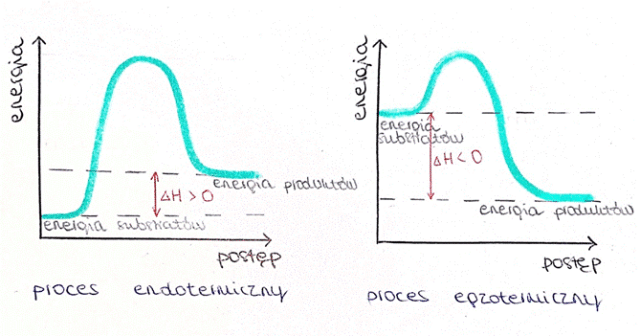 energia
energia produktów
ΔH > 0
energia substratów
postęp
proces endotermiczny
energia
energia
substratów
ΔH < 0
energia produktów
postęp
proces egzotermiczny